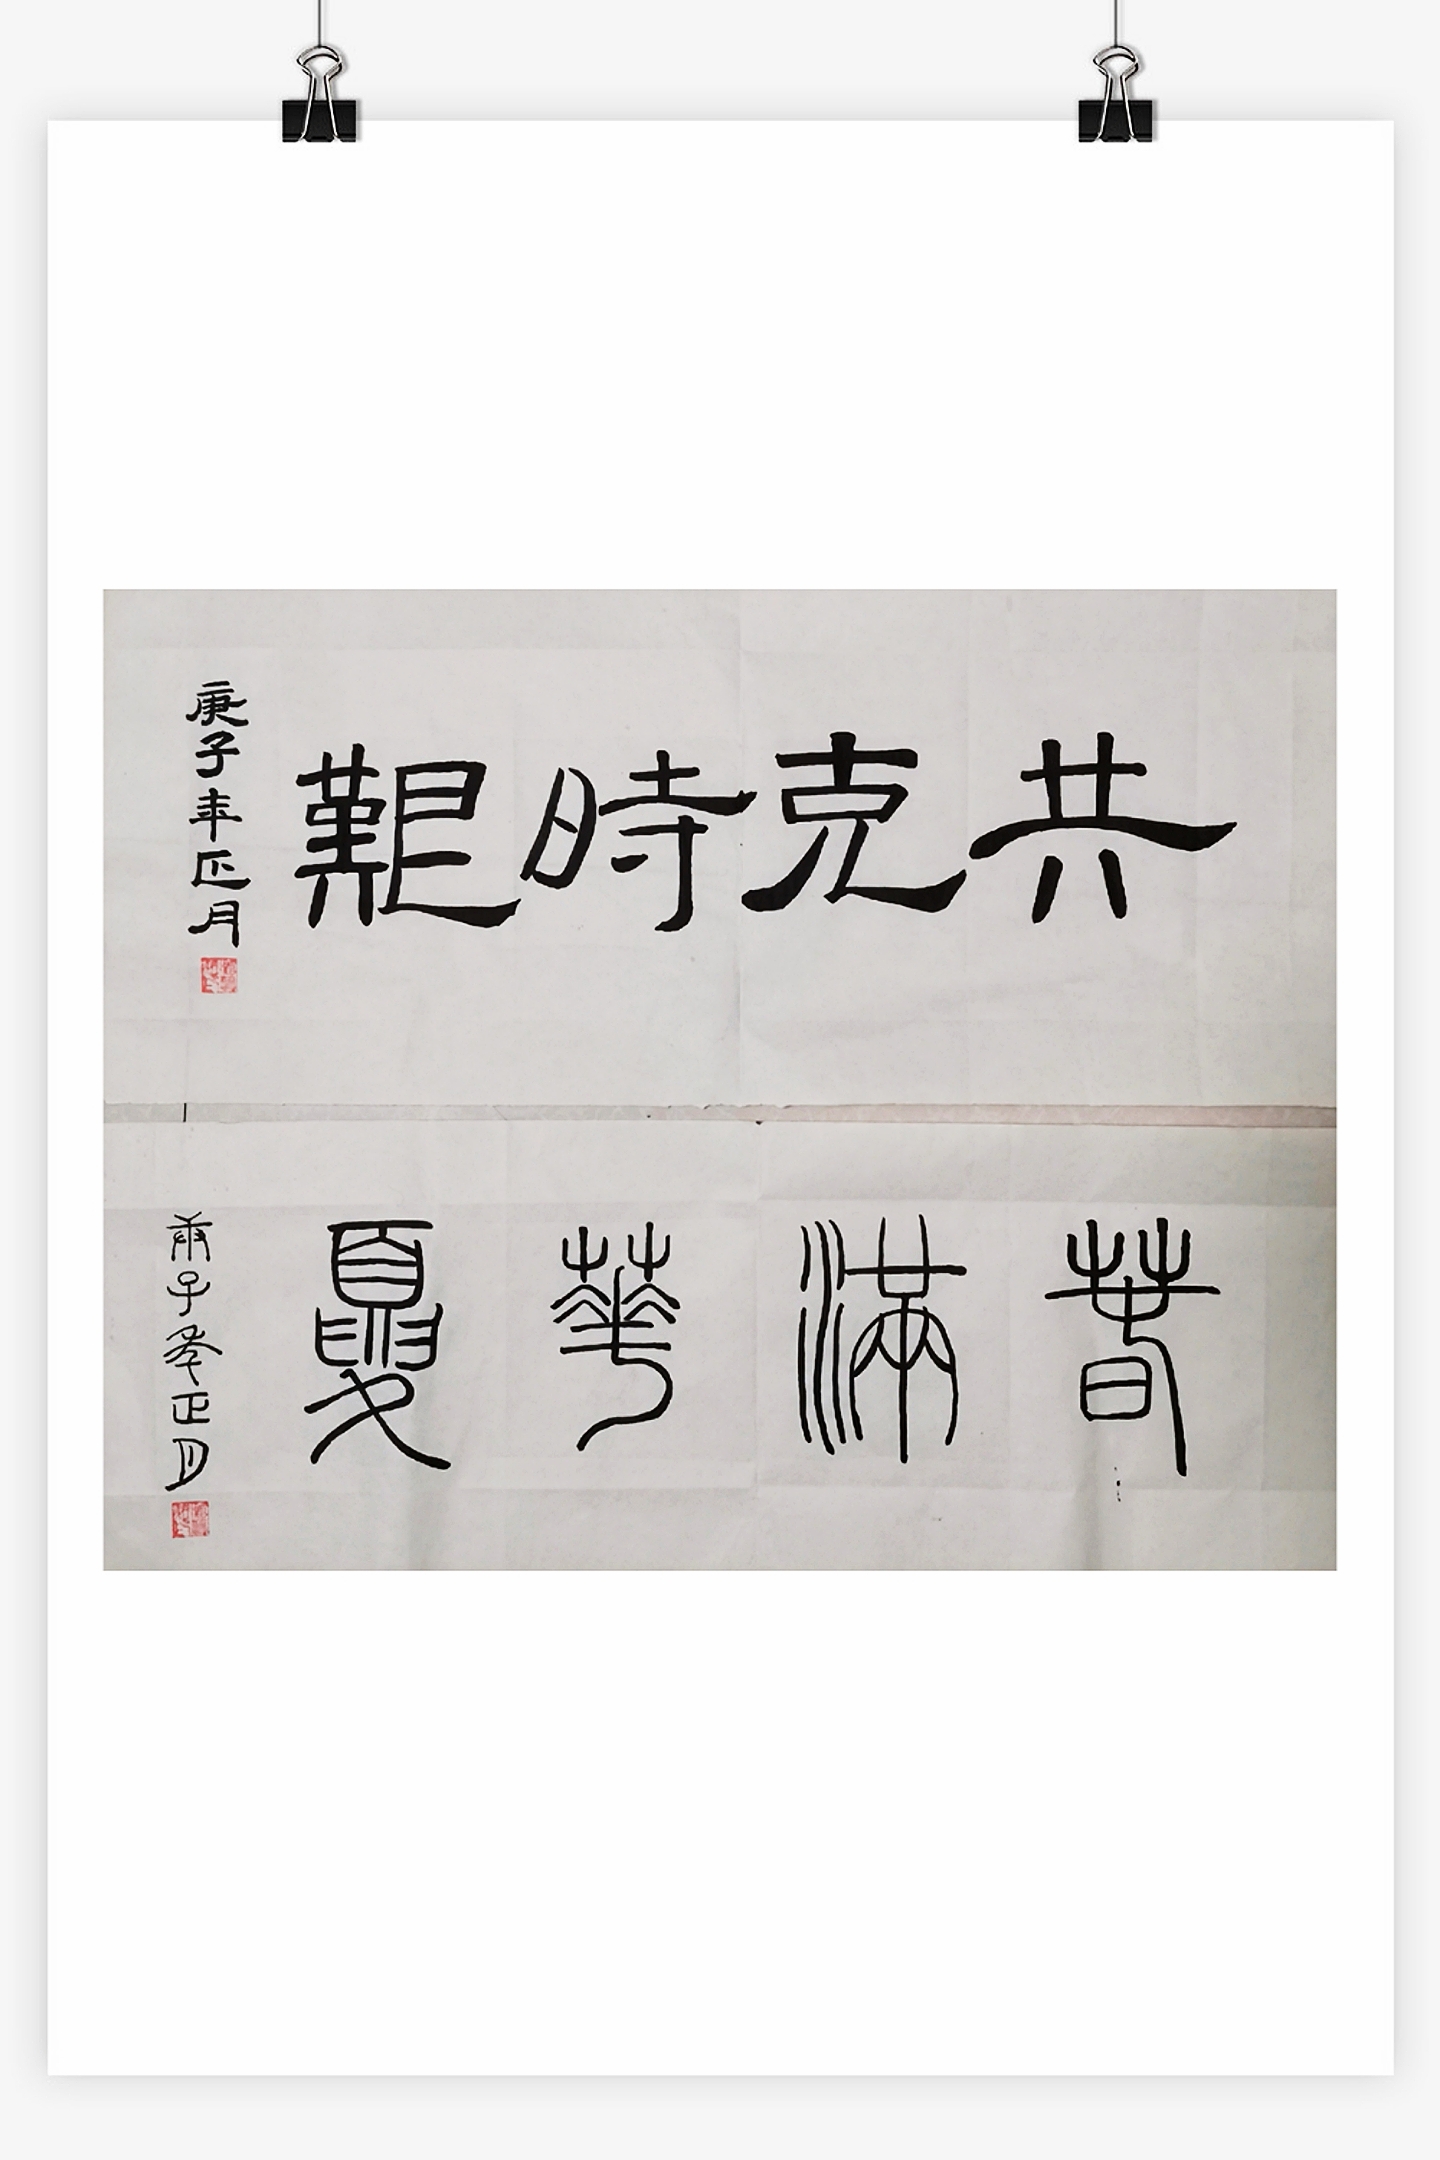 共克時艱
庚子年正月
萅滿華夏
庚子年正月